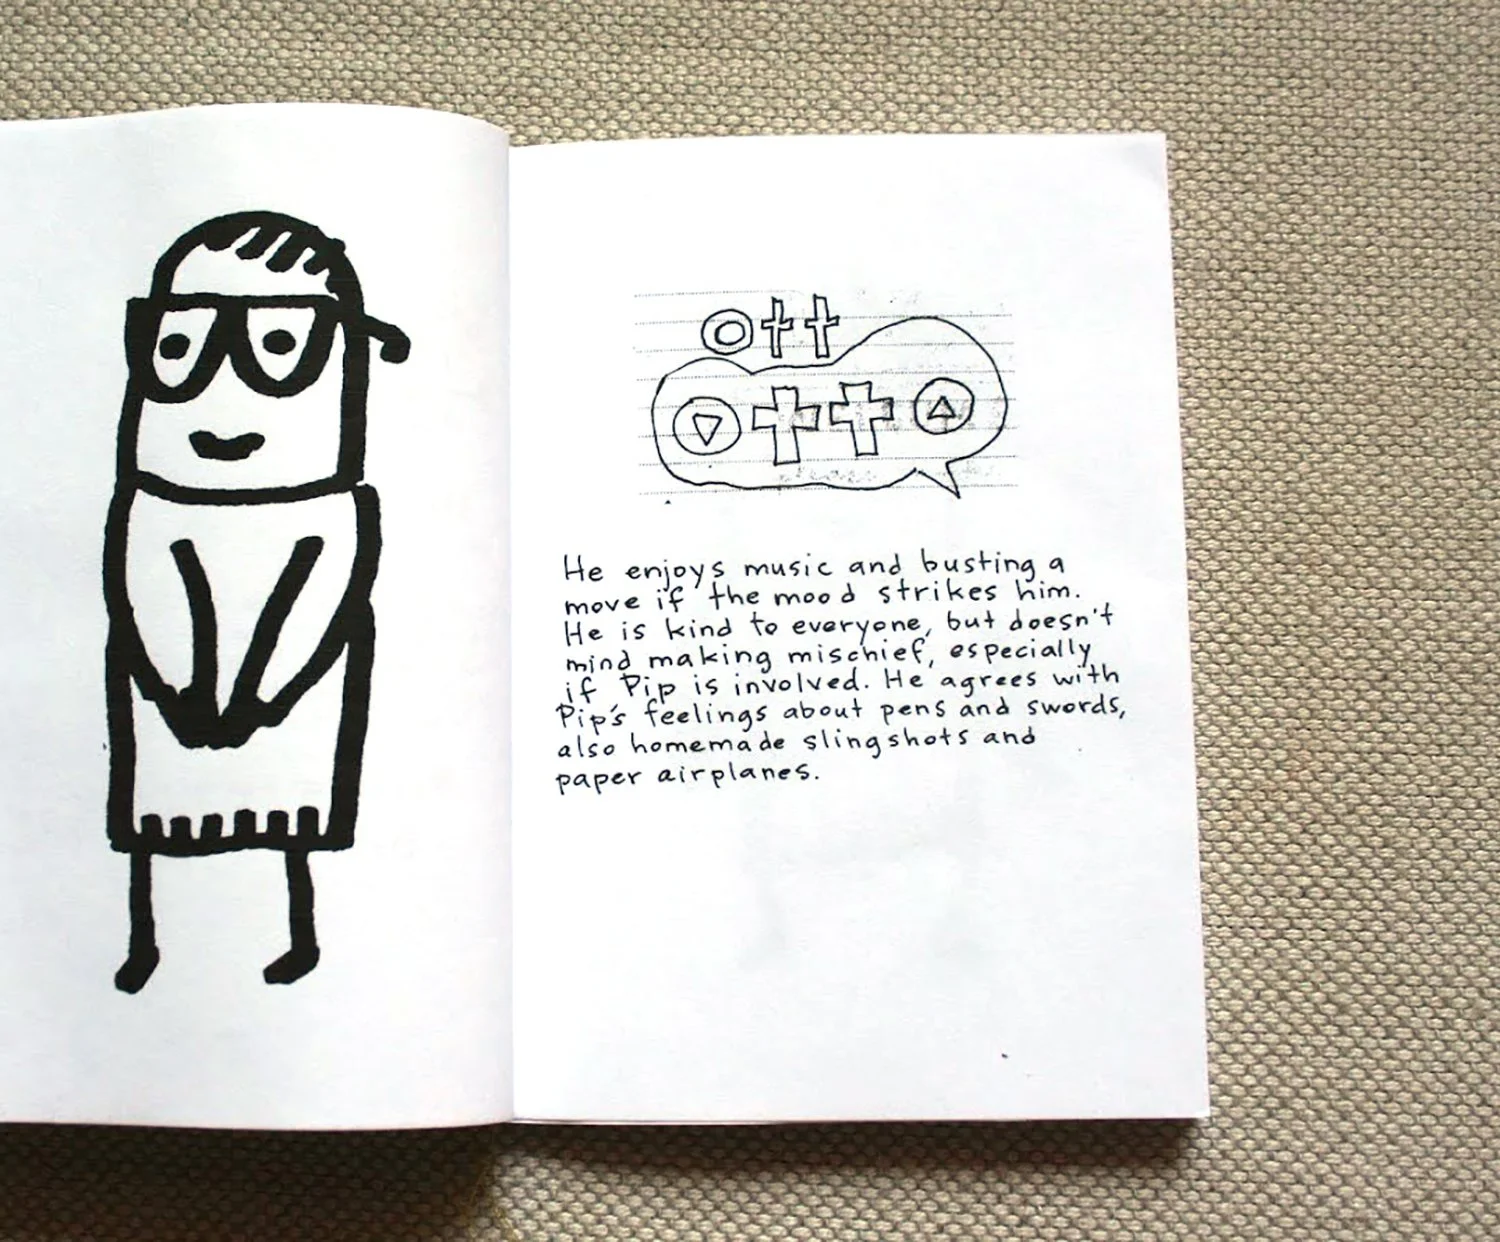 ott
ott o
He enjoys music and busting a
move if the mood strikes him.
He is kind to everyone, but doesn't
mind making mischief, especially
if Pip is involved. He agrees with
Pip's feelings about pens and swords,
also homemade slingshots and
paper airplanes.